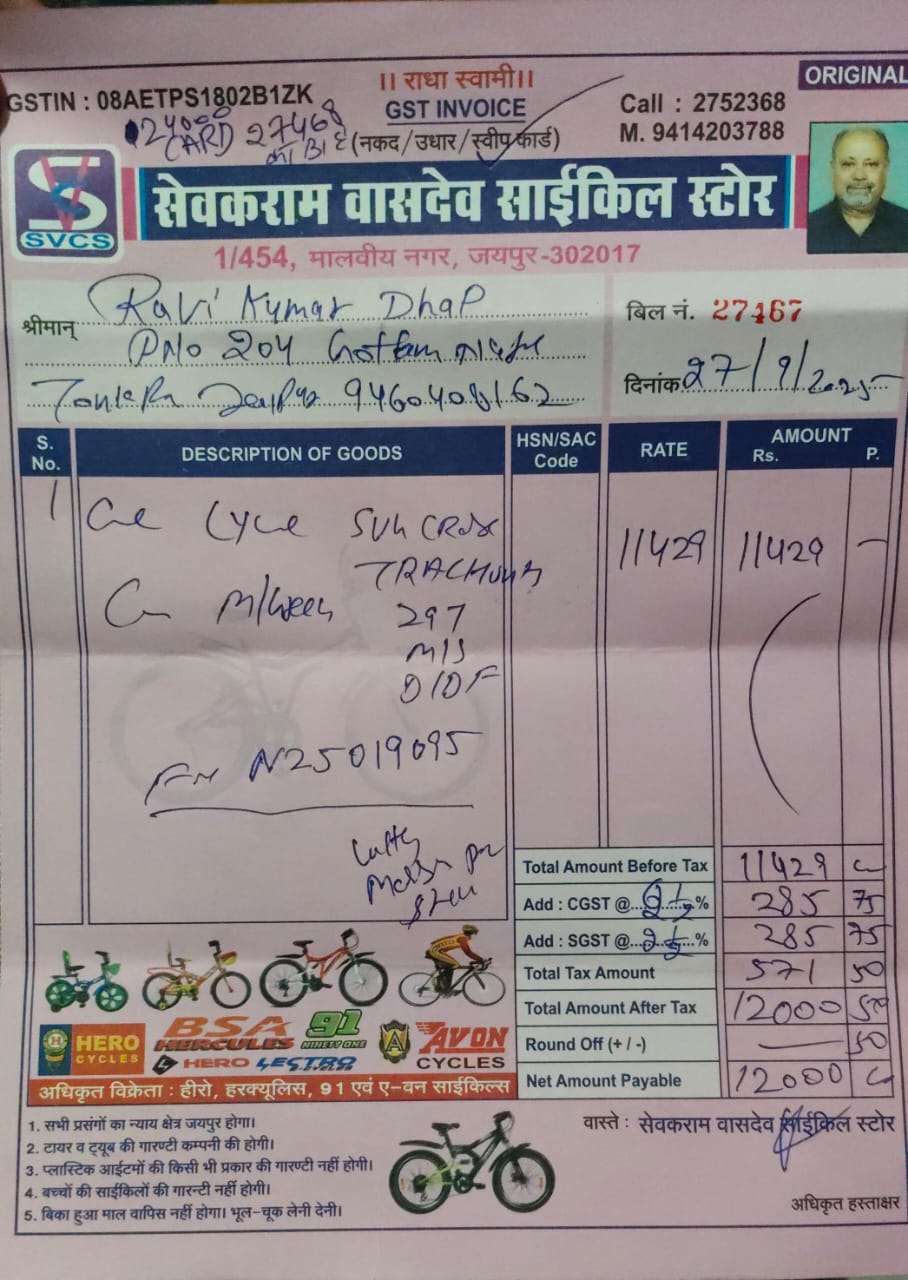 ORIGINAL
।। राधा स्वामी।।
GSTIN : 08AETPS1802B1ZK
GST INVOICE
Call : 2752368
24000
CARD 27468
(नकद/उधार/स्वीप कार्ड)
M. 9414203788
SVCS
सेवकराम वासदेव साईकिल स्टोर
1/454, मालवीय नगर, जयपुर-302017
श्रीमान् Ravi Kumar Dhap
बिल नं. 27467
PNo 204
दिनांक 27/9/2025
S. No.
DESCRIPTION OF GOODS
HSN/SAC Code
RATE
AMOUNT
Rs.
P.
1
Cycle
11429
11429 -
297
M/S
D/DF
N25019095
Total Amount Before Tax 11429
Add : CGST @ 2½ % 285 75
Add : SGST @ 2½ % 285 75
Total Tax Amount 571 50
Total Amount After Tax 12000 50
Round Off (+ / -) — 50
Net Amount Payable 12000
HERO CYCLES
BSA
HERCULES
91
NINETY ONE
HERO LECTRO
A
AVON CYCLES
अधिकृत विक्रेता : हीरो, हरक्यूलिस, 91 एवं ए-वन साईकिल्स
1. सभी प्रसंगों का न्याय क्षेत्र जयपुर होगा।
2. टायर व ट्यूब की गारण्टी कम्पनी की होगी।
3. प्लास्टिक आईटमों की किसी भी प्रकार की गारण्टी नहीं होगी।
4. बच्चों की साईकिलों की गारन्टी नहीं होगी।
5. बिका हुआ माल वापिस नहीं होगा। भूल-चूक लेनी देनी।
वास्ते : सेवकराम वासदेव साईकिल स्टोर
अधिकृत हस्ताक्षर